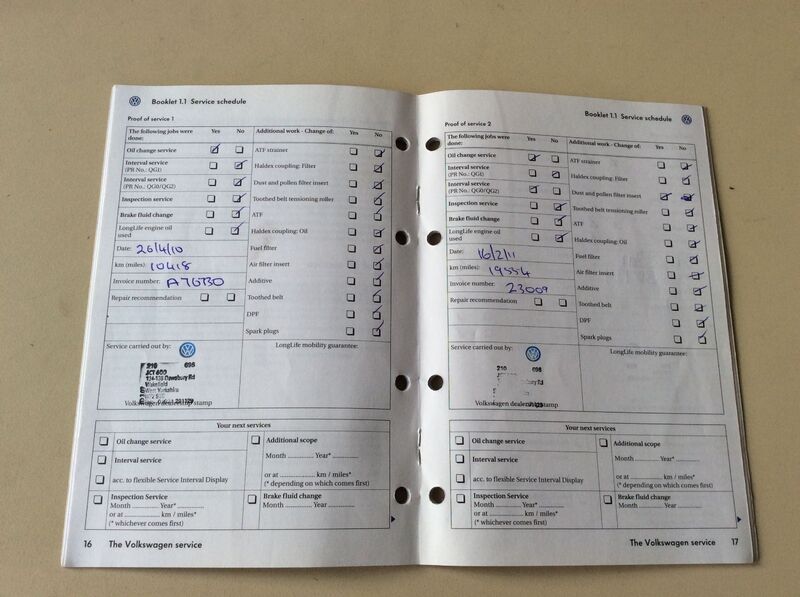 Booklet 1.1 Service schedule
Proof of service 1
The following jobs were done: Yes No
Additional work - Change of: Yes No
Oil change service
ATF strainer
Interval service
(PR No.: QG1)
Haldex coupling: Filter
Interval service
(PR No.: QG0/QG2)
Dust and pollen filter insert
Inspection service
Toothed belt tensioning roller
Brake fluid change
ATF
LongLife engine oil
used
Haldex coupling: Oil
Date: 26/4/10
Fuel filter
km (miles): 10418
Air filter insert
Invoice number:
Additive
Repair recommendation
Toothed belt
DPF
Spark plugs
Service carried out by:
LongLife mobility guarantee:
210 698
Dewsbury Rd
Wakefield
West Yorkshire
Volkswagen dealership stamp
Your next services
Oil change service
Additional scope
Month Year*
Interval service
or at km / miles*
acc. to flexible Service Interval Display
(* depending on which comes first)
Inspection Service
Month Year*
or at km / miles*
(* whichever comes first)
Brake fluid change
Month Year
16 The Volkswagen service
Booklet 1.1 Service schedule
Proof of service 2
The following jobs were done: Yes No
Additional work - Change of: Yes No
Oil change service
ATF strainer
Interval service
(PR No.: QG1)
Haldex coupling: Filter
Interval service
(PR No.: QG0/QG2)
Dust and pollen filter insert
Inspection service
Toothed belt tensioning roller
Brake fluid change
ATF
LongLife engine oil
used
Haldex coupling: Oil
Date: 16/2/11
Fuel filter
km (miles): 19554
Air filter insert
Invoice number: 23009
Additive
Repair recommendation
Toothed belt
DPF
Spark plugs
Service carried out by:
LongLife mobility guarantee:
210 698
Volkswagen dealership stamp
Your next services
Oil change service
Additional scope
Month Year*
Interval service
or at km / miles*
acc. to flexible Service Interval Display
(* depending on which comes first)
Inspection Service
Month Year*
or at km / miles*
(* whichever comes first)
Brake fluid change
Month Year
The Volkswagen service 17